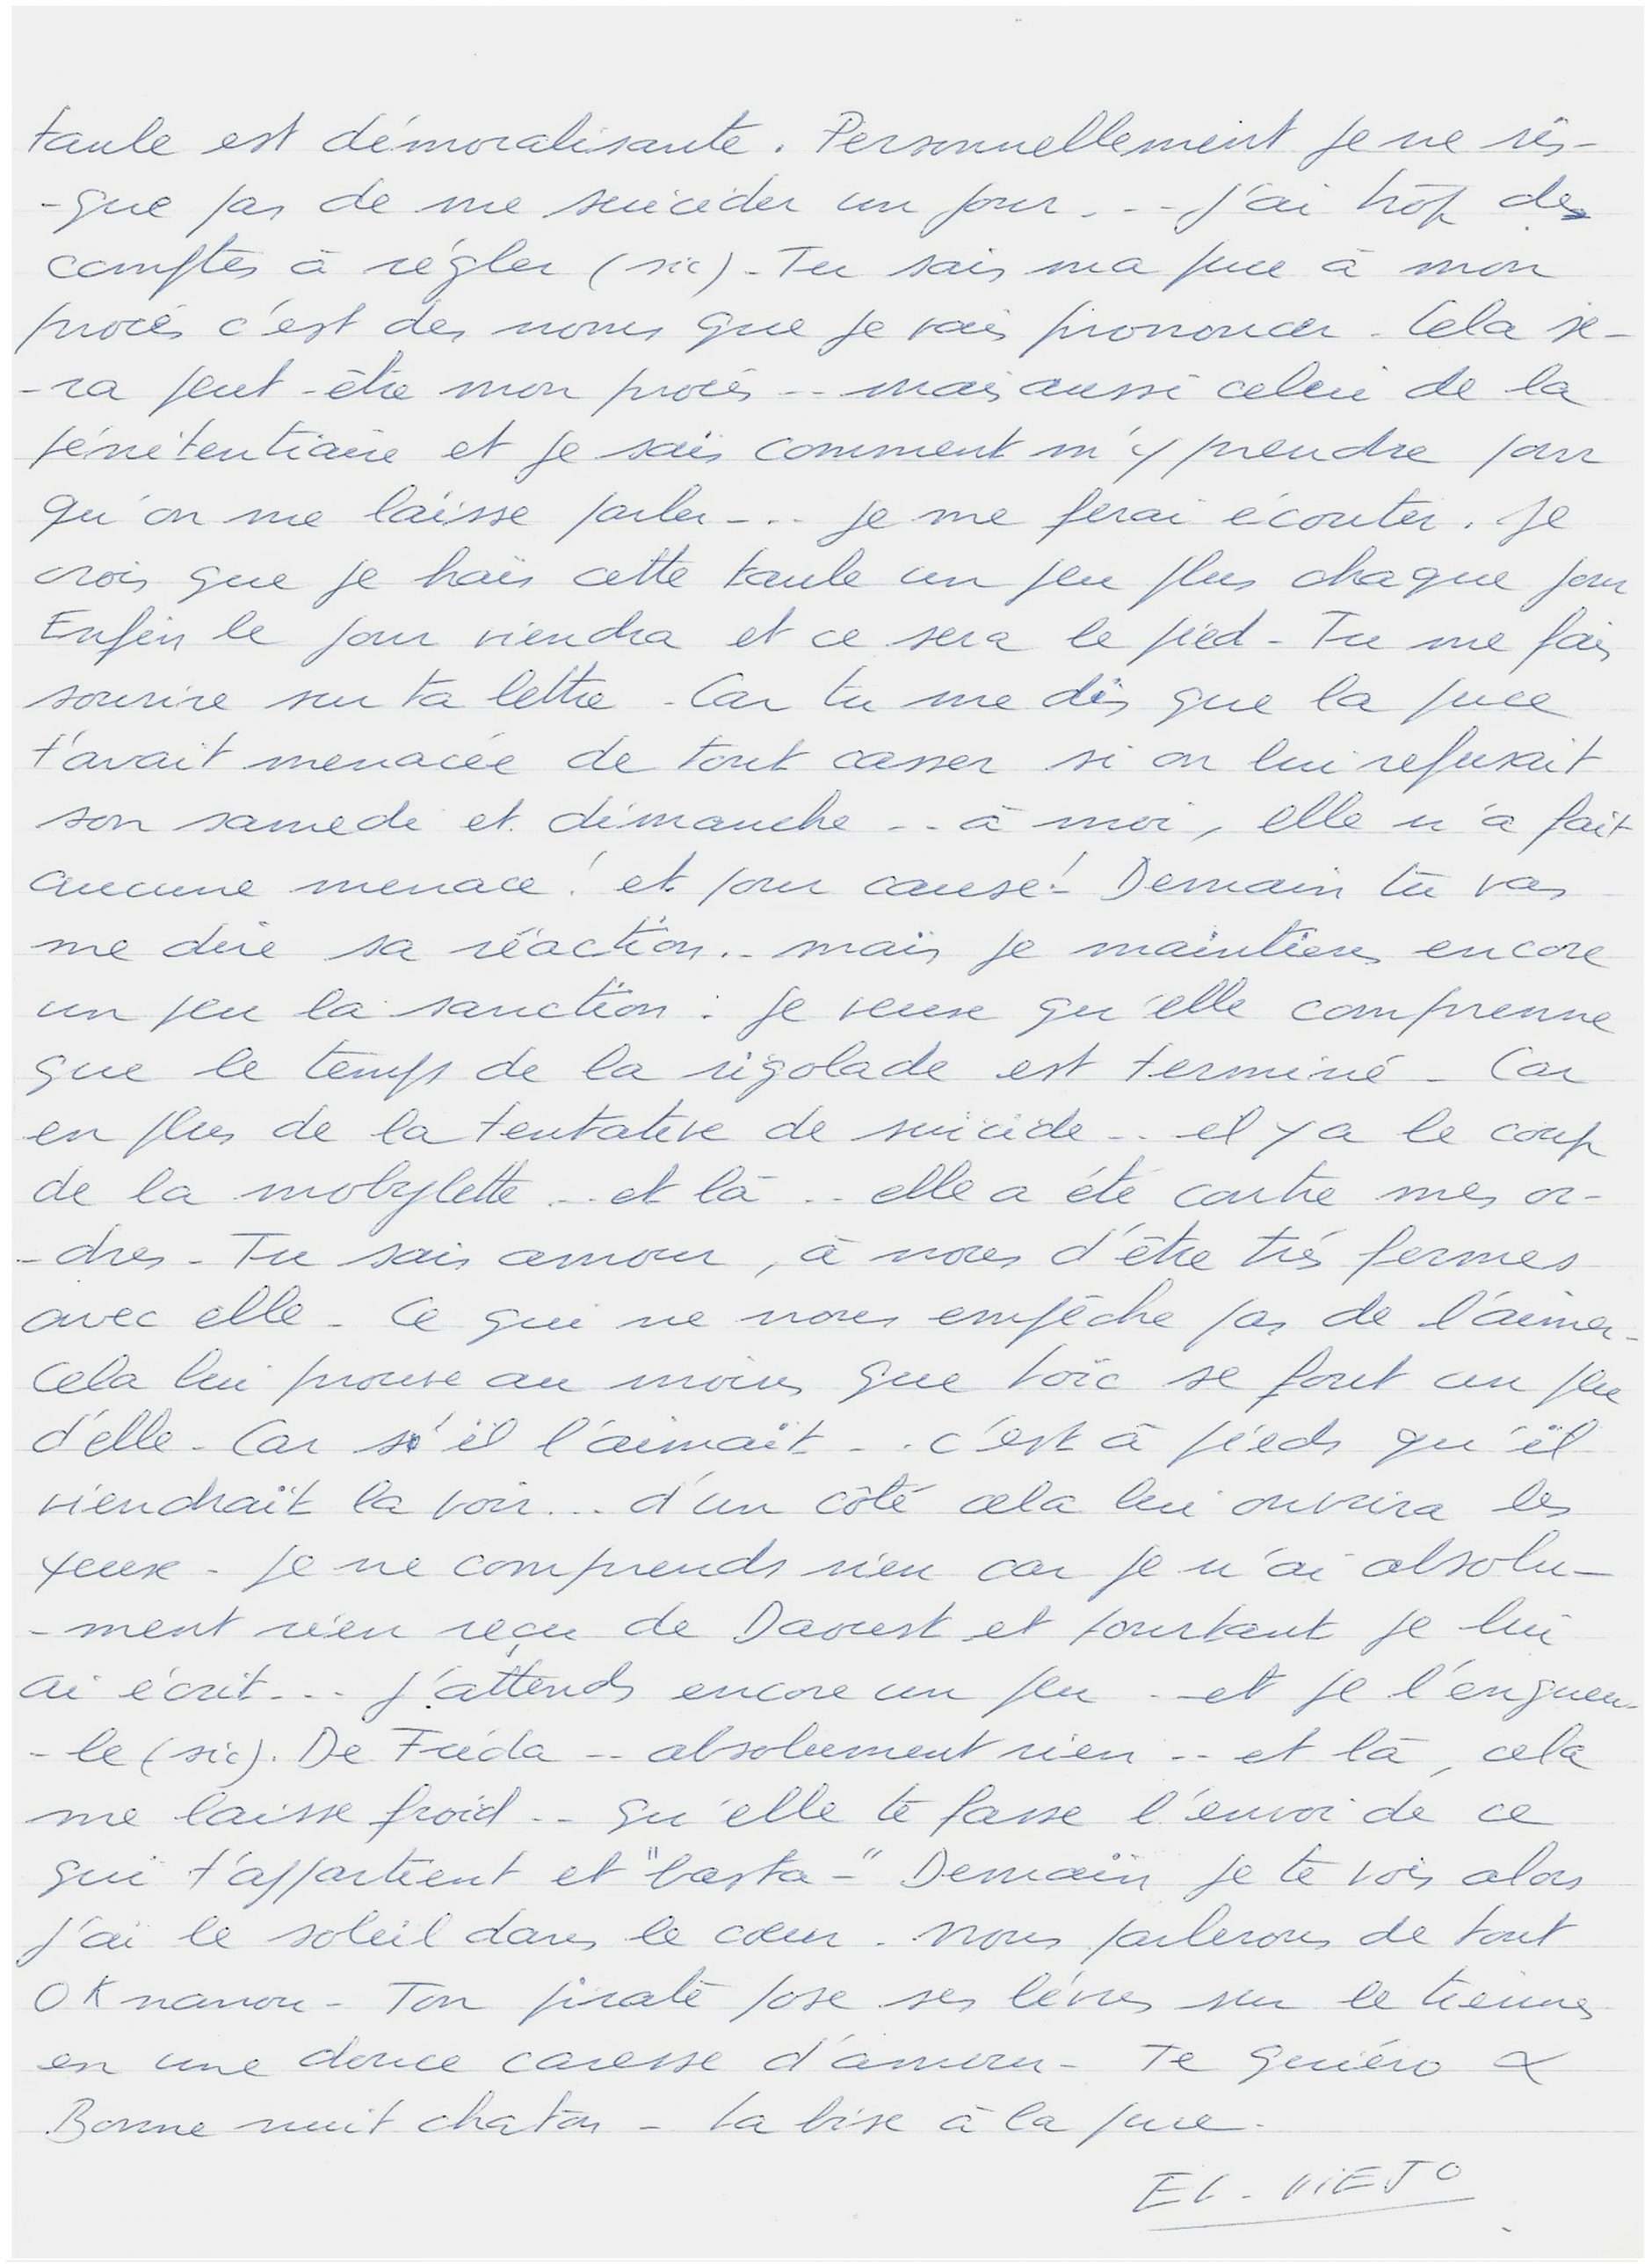 taule est démoralisante. Personnellement je ne ris-
-que pas de me suicider un jour... J'ai trop des
comptes à régler (sic) - Tu sais ma puce à mon
procés c'est des noms que je vais prononcer - Cela se-
-ra peut-être mon procés -- mais aussi celui de la
pénitentiaire et je sais comment m'y prendre pour
qu'on me laisse parler... je me ferai écouter. Je
crois que je hais cette taule un peu plus chaque jour
Enfin le jour viendra et ce sera le pied - Tu me fais
sourire sur ta lettre - Car tu me dis que la puce
t'avait menacée de tout casser si on lui refusait
son samedi et dimanche .. à moi, elle n'a fait
aucune menace! et pour cause! Demain tu vas
me dire sa réaction.. mais je maintiens encore
un peu la sanction. Je veux qu'elle comprenne
que le temps de la rigolade est terminé - Car
en plus de la tentative de suicide .. il y a le coup
de la mobylette .. et là .. elle a été contre mes or-
-dres - Tu sais amour, à nous d'être trés fermes
avec elle - Ce qui ne nous empêche pas de l'aimer -
Cela lui prouve au moins que Loïc se fout un peu
d'elle - Car s'il l'aimait .. c'est à pieds qu'il
viendrait la voir... d'un côté cela lui ouvrira les
yeux - Je ne comprends rien car je n'ai absolu-
-ment rien reçu de Davest et pourtant je lui
ai écrit... J'attends encore un peu .. et je l'engueu-
-le (sic). De Frida -- absolument rien .. et là, cela
me laisse froid .. qu'elle te fasse l'envoi de ce
qui t'appartient et "basta-" Demain je te vois alors
j'ai le soleil dans le cœur. Nous parlerons de tout
OK nanou - Ton pirate pose ses lévres sur le tiennes
en une douce caresse d'amour - Te quiéro
Bonne nuit chaton - La bise à la puce -
EL - VIEJO